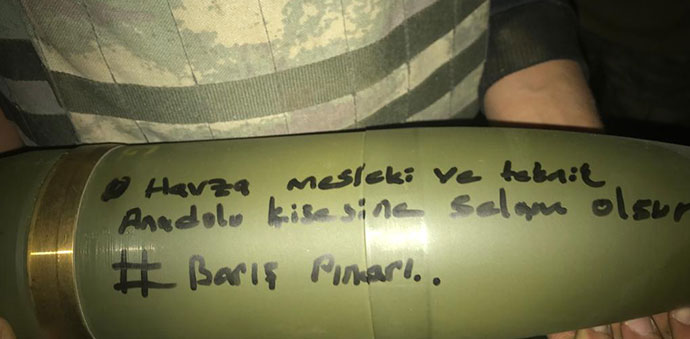 Havza mesleki ve teknik
Anadolu lisesine selam olsun
# Barış Pınarı..